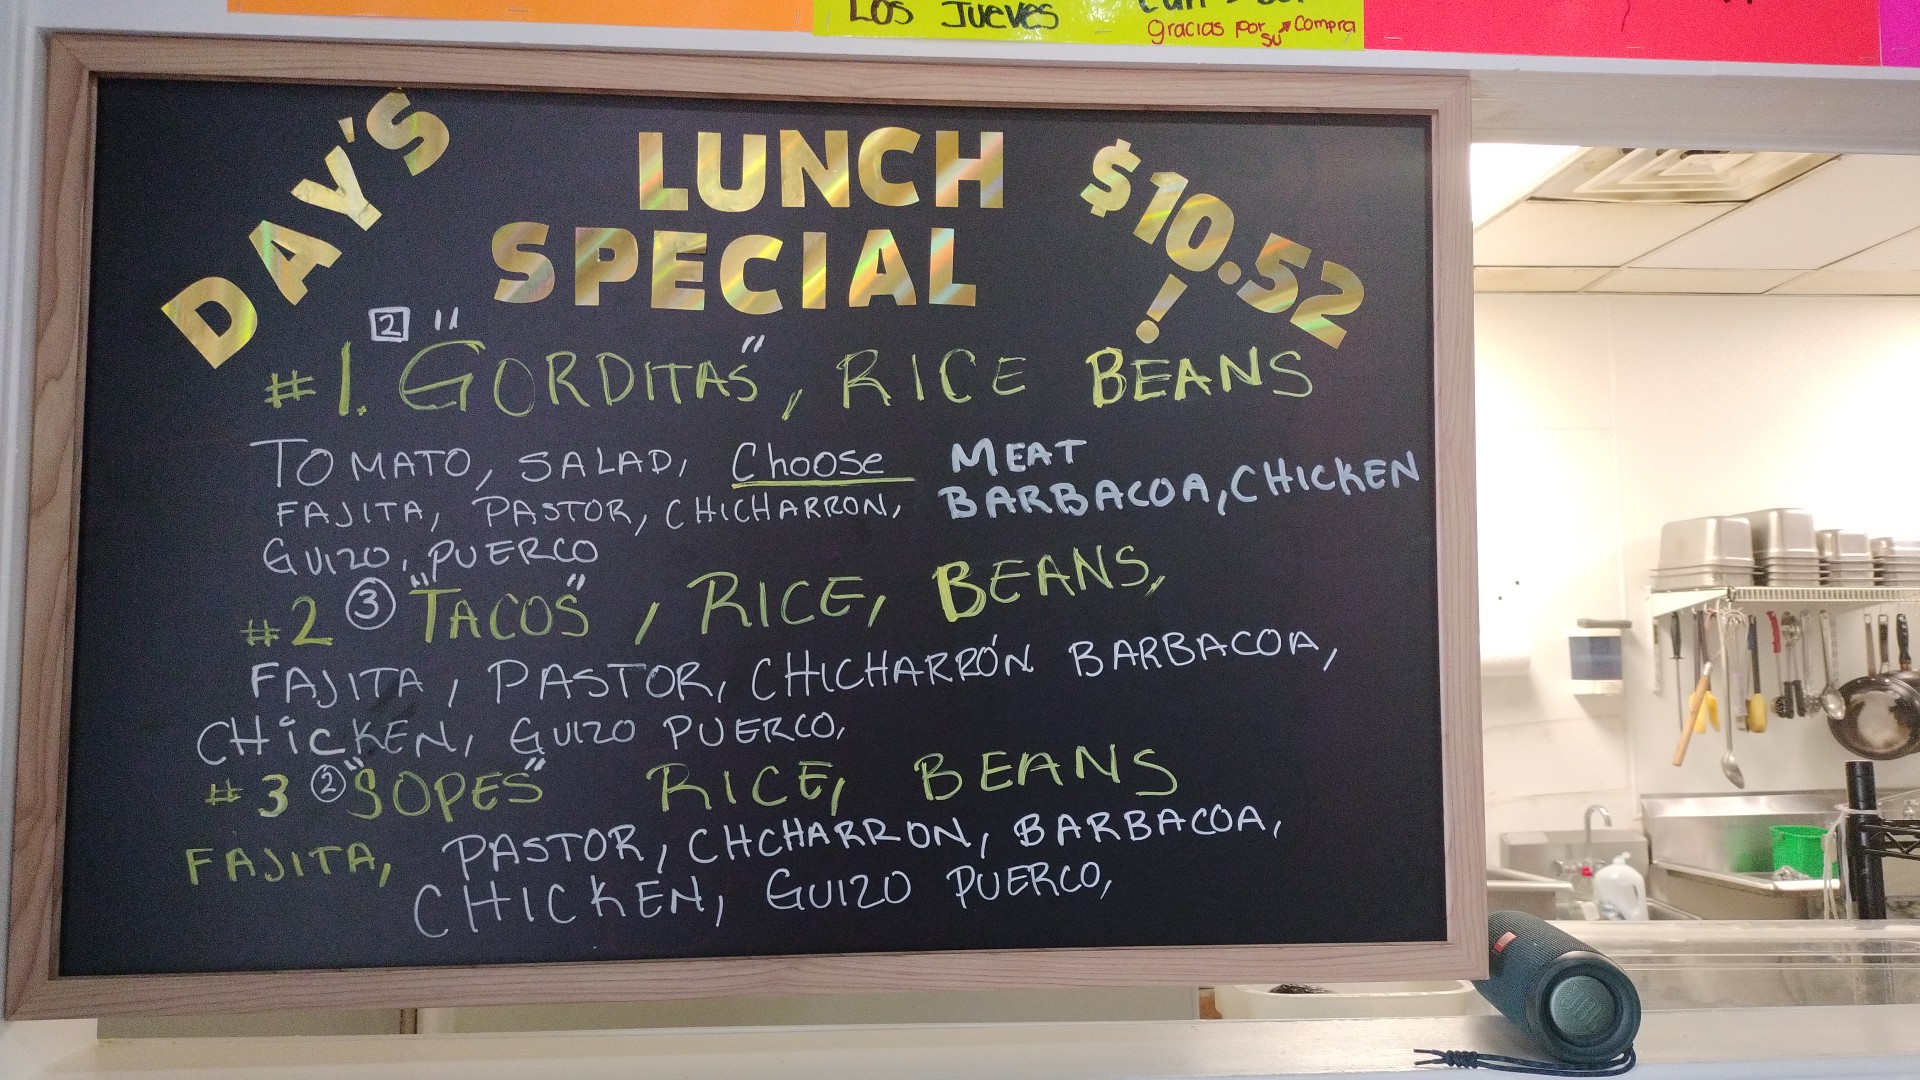 Los Jueves
Gracias por su Compra
DAY'S LUNCH SPECIAL $10.52!
#1. 2 "GORDITAS", RICE BEANS
TOMATO, SALAD, Choose MEAT
FAJITA, PASTOR, CHICHARRON, BARBACOA, CHICKEN
GUIZO, PUERCO
#2 3 "TACOS", RICE, BEANS,
FAJITA, PASTOR, CHICHARRÓN BARBACOA,
CHICKEN, GUIZO PUERCO,
#3 2 "SOPES" RICE, BEANS
FAJITA, PASTOR, CHCHARRON, BARBACOA,
CHICKEN, GUIZO PUERCO,
JBL